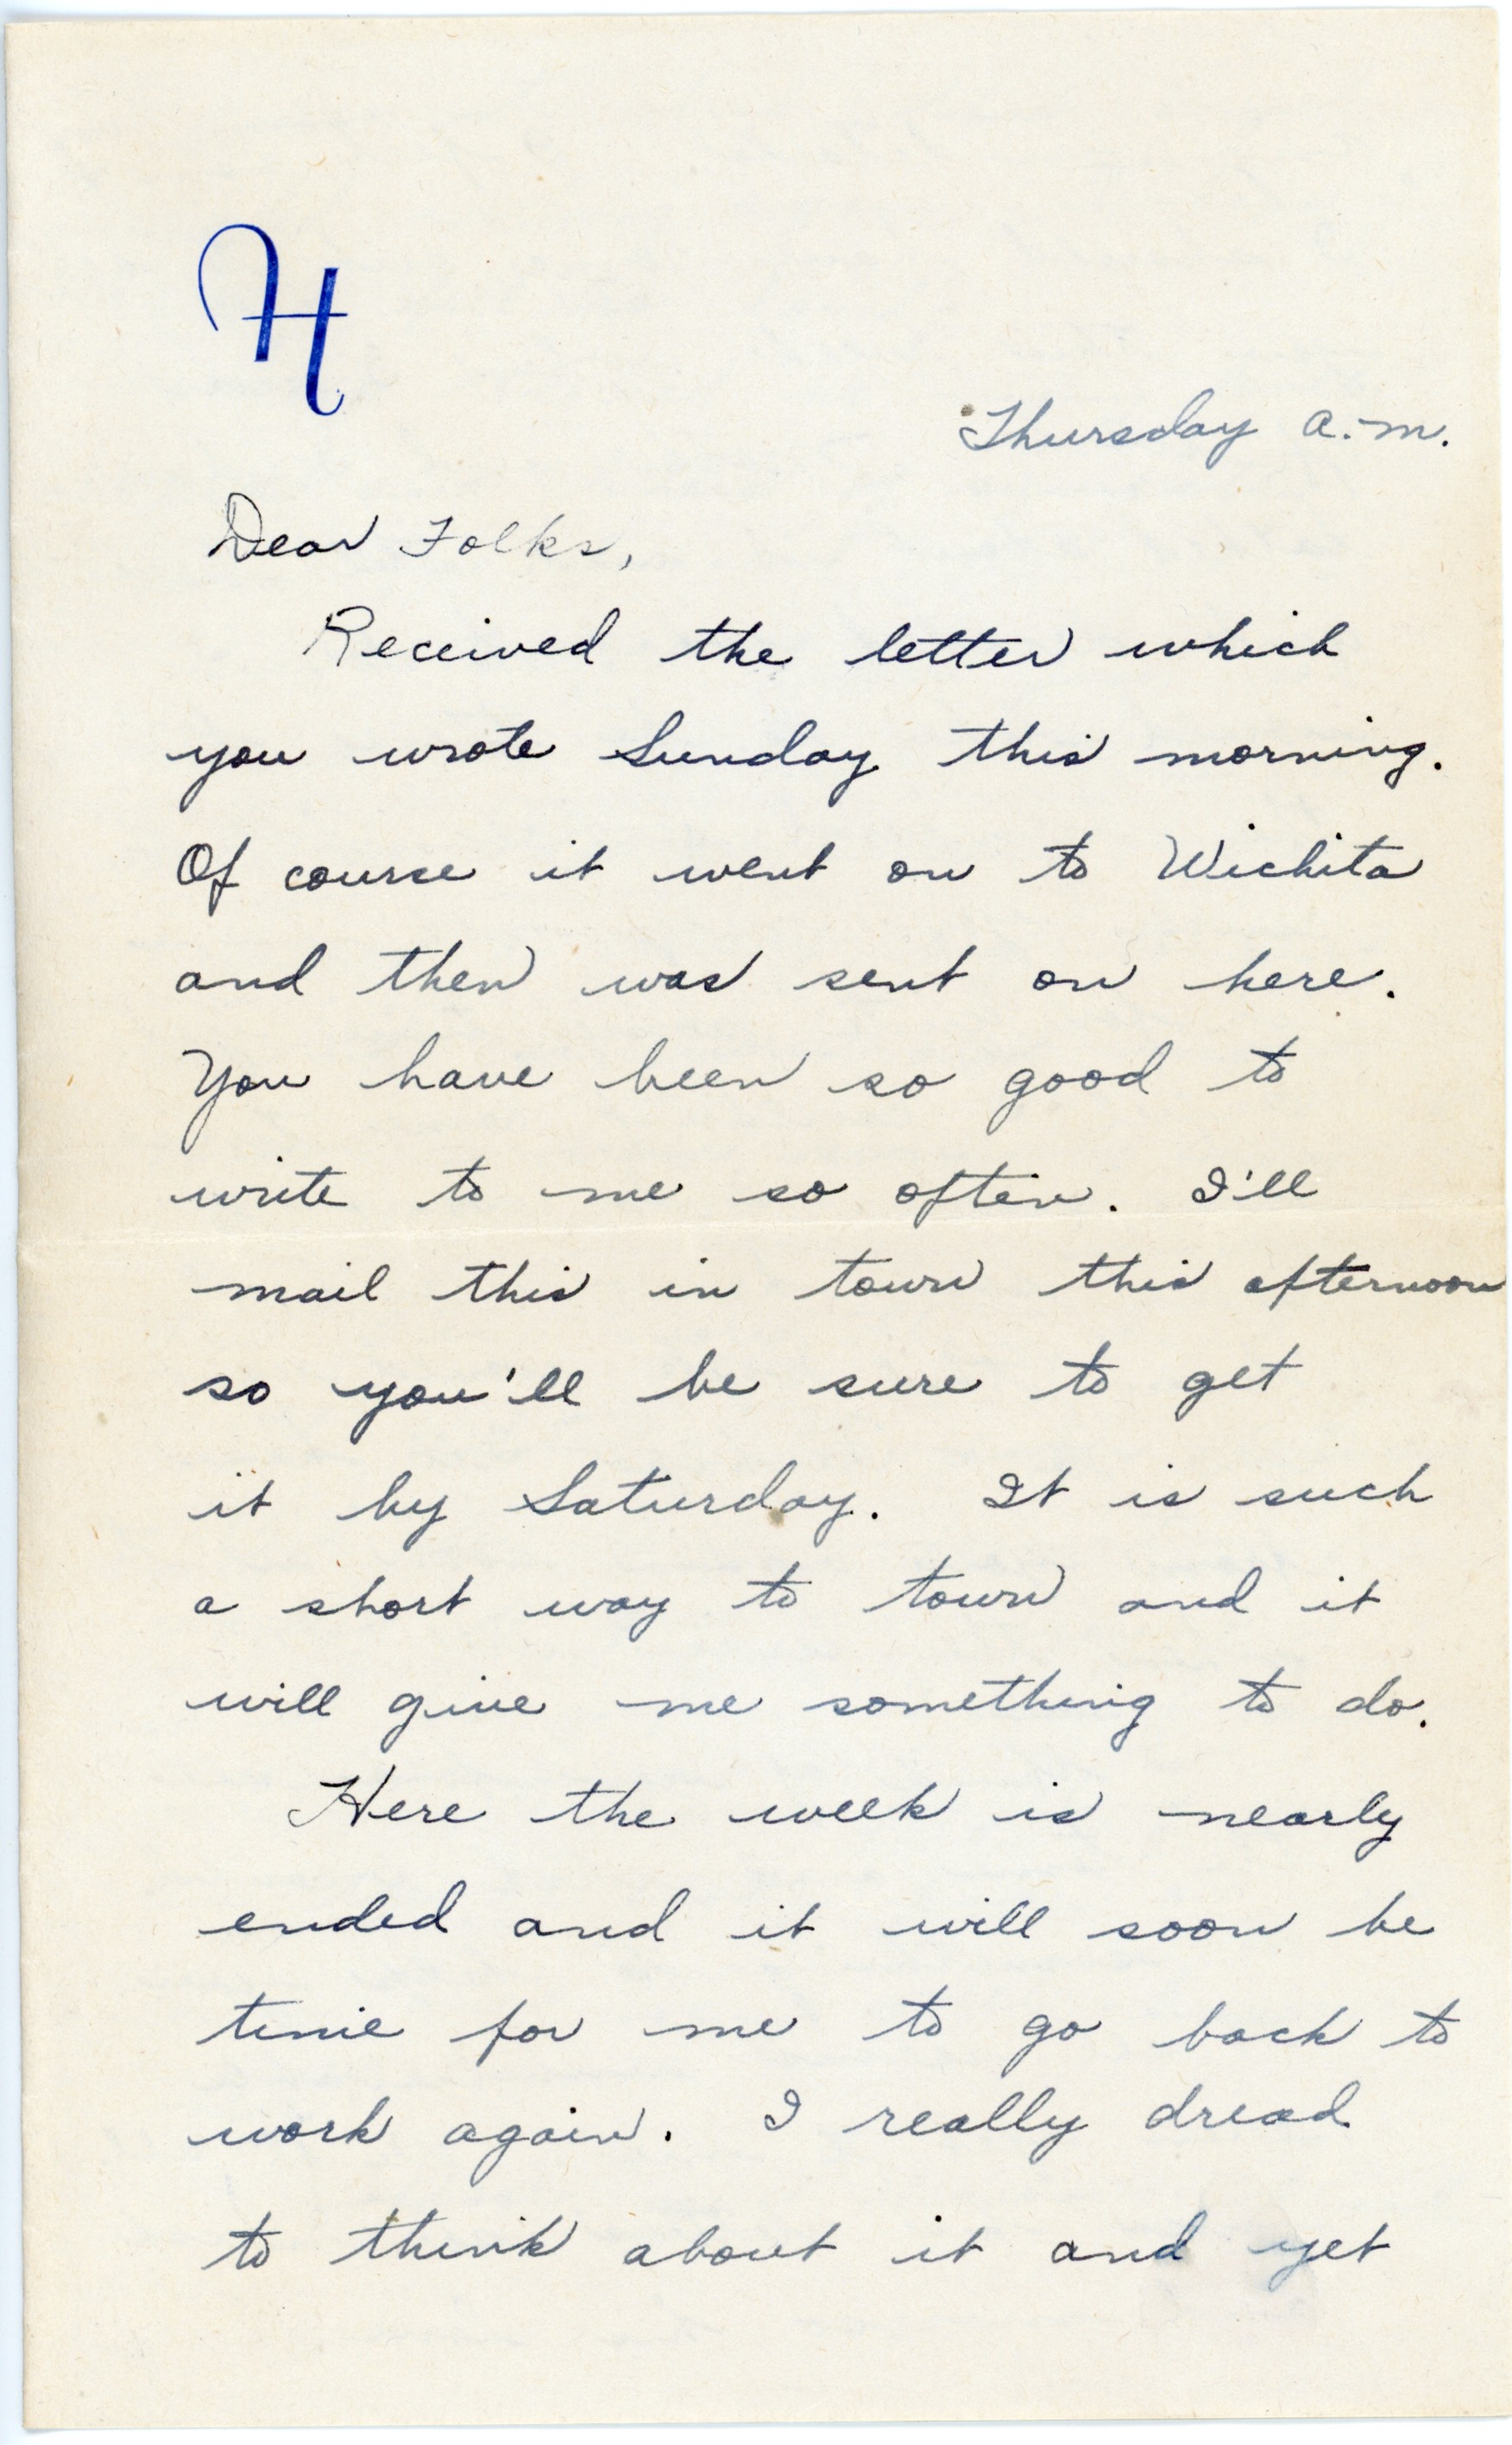 H
Thursday a.m.
Dear Folks,
Received the letter which
you wrote Sunday this morning.
Of course it went on to Wichita
and then was sent on here.
You have been so good to
write to me so often. I'll
mail this in town this afternoon
so you'll be sure to get
it by Saturday. It is such
a short way to town and it
will give me something to do.
Here the week is nearly
ended and it will soon be
time for me to go back to
work again. I really dread
to think about it and yet